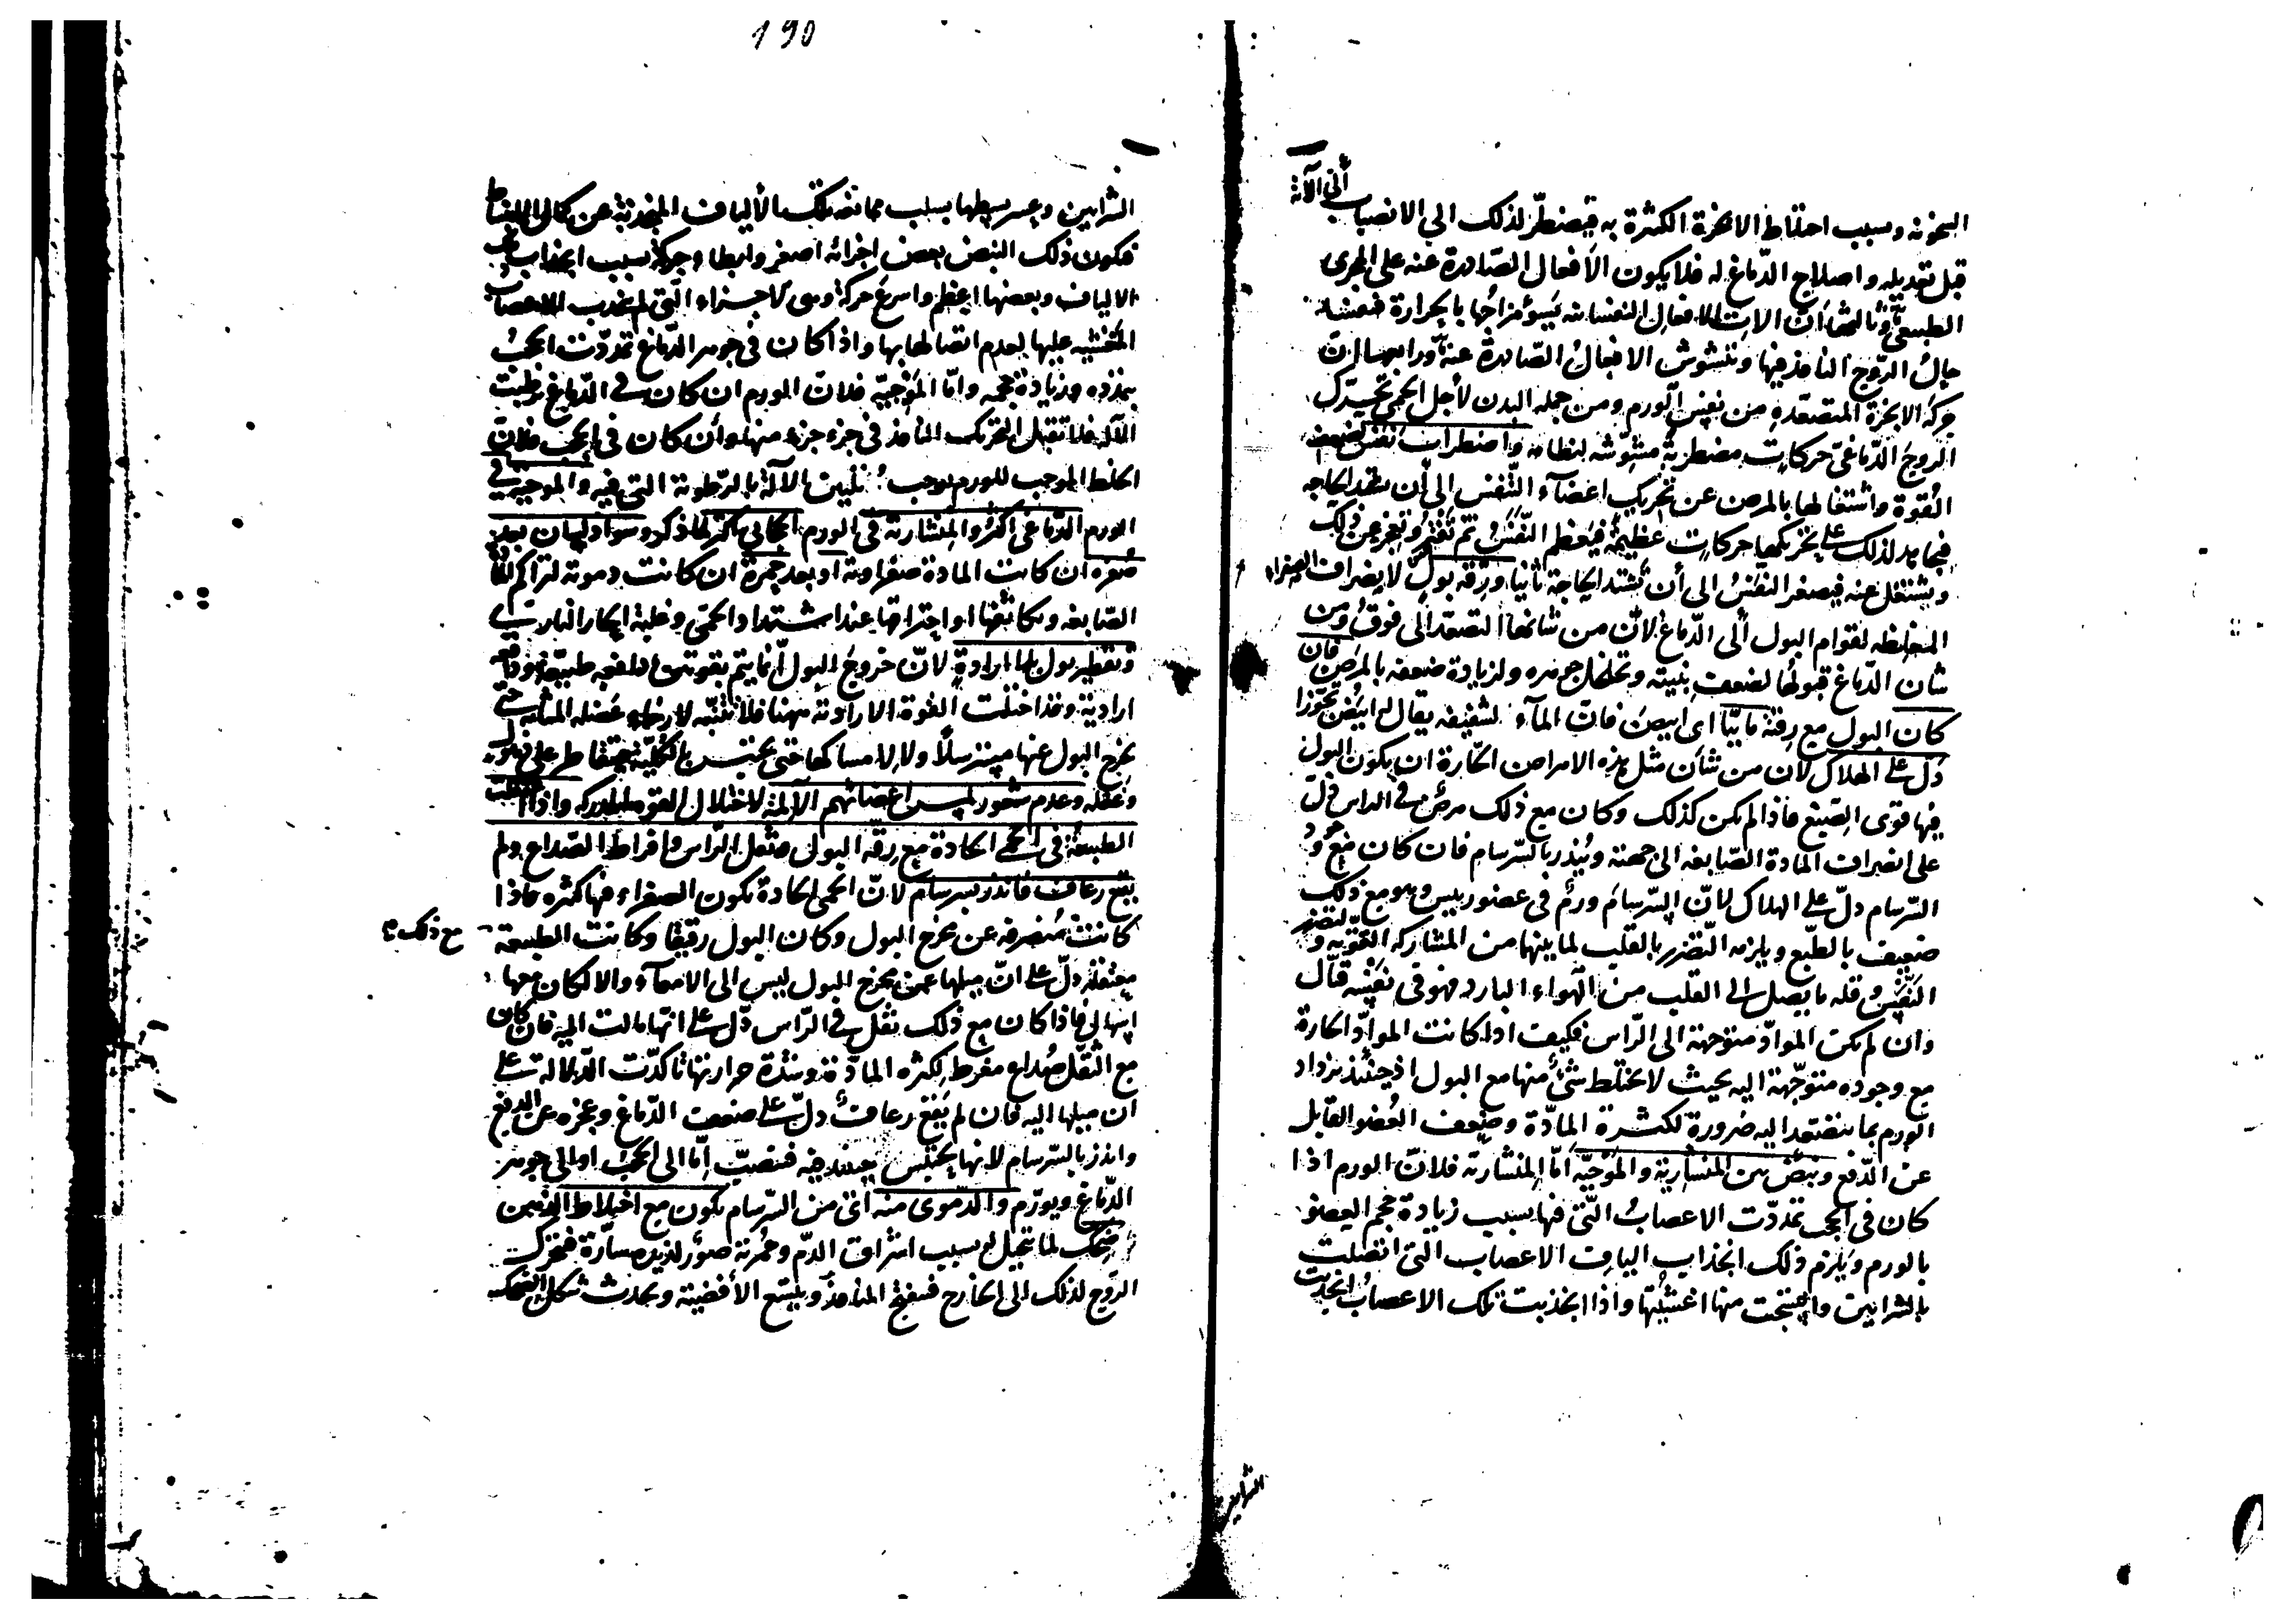 السخونه وبسبب احتلاط الابخرة الكثيرة به فيضطرّ لذلك الى الانصباب الى الآلة
قبل تعديله واصلاح الدّماغ له فلا يكون الأفعال الصّادرة عنه على المجرى
الطبيعىّ وثالثها أنّ الات الافعال النفسانيه يَسوُ مزاجُها بالحرارة
حالُ الرّوح النافذ فيها وتتشوش الافعالُ الصّادرة عنه ورابعها انّ
حركة الابخرة المتصعّدةِ من نفس الورم ومن جملة البدن لأجل الحمى تحرّك
الروحَ الدّماغىّ حركاتٍ مضطربة مشوّشه لنظامه واضطراب نفسٍ لضعف
القوة واشتغالها بالمرض عن تحريك اعضآء التّنفس الى أن تشتد الحاجه
لذلك على تحريكها حركاتٍ عظيمة فيَعظم النّفَسُ ثم تَفترُ وتعجز عن ذلك
وتشتغل عنه فيصغر النفسُ الى أن تشتد الحاجة ثانيا ورقّه بولٍ لانصراف الصفراء
المغلظه لقوام البول الى الدّماغ لأنّ من شأنها التصعّد الى فوقُ ومن
شان الدّماغ قبولُها لضعف بنيته وتخلخل جوهره ولزيادة ضعفه بالمرض فان
كان البول مع رقته مائيّا اى ابيضَ فانّ المآء لشفيفه يقال له ابيَضُ تجوّزا
دَلّ على الهلاك لان من شأن مثل هذه الامراض الحّارة ان يكون البول
فيها قوى الصّبغ فاذا لم يكن كذلك وكان مع ذلك مرضٌ فى الراس دلّ
على انصراف المادة الصّابغه الى جهته ويُنذر بالسّرسام فان كان مع وجود
السّرسام دلّ على الهلاك لانّ السّرسام ورمٌ فى عضو رييس وهو مع ذلك
ضعيف بالطّبع ويلزمه التّضرر بالقلب لما بينهما من المشاركه القويّه ولتضرر
النَفَسِ وقله ما يصل الى القلب من الهواء البارد فهو فى نَفسِه قتّال
وان لم تكن الموادّ متوجّهة الى الرّاس فكيف اذا كانت الموادّ الحارة
مع وجوده متوجّهة اليه بحيث لا يختلط شئٌ منها مع البول اذ حينئذ يزداد
الورم بما يتصعّد اليه ضرورة لكثرة المادّة وضعف العُضو القابل
عن الدّفع ونبض بين المنشاريّة والمَوجيّه امّا المنشاريّه فلانّ الورم اذا
كان فى الحجب تمددّت الاعصابُ الّتى فيها بسبب زيادة حجم العضو
بالورم ويلزم ذلك انجذاب الياف الاعصاب التى اتصلت
بالشرايين وانتسجت منها اغشيتُها واذا انجذبت تلك الاعصابُ انجذبت
الشرايين
190
الشرايين وعسر بسطها بسبب ممانعه تلك الألياف المنجذبة عن كمال الانبساط
فيكون ذلك النبض بعض اجزائه اصغر وابطا حركة بسبب انجذاب
الالياف وبعضها اعظم واسرع حركة وهى الاجزاء الّتى لم تنجذب الاعصاب
المُغشيه عليها لعدم اتصالها بها واذا كان فى جوهر الدّماغ تمدّدت الحجبُ
بتمدّده وزيادة حجمه وامّا المَوْجيّه فلانّ الورم ان كان فى الدّماغ رطبت
الآلة فلا تقبل التحريك النافذ فى جزءٍ جزءٍ منها وأن كان فى الحجب فلانّ
الخلط الموجب للورم يوجب تليين الآلة بالرّطوبة التى فيه والموجية فى
الورم الدّماغى اكثُر والمنشارية فى الورم الحجابى اكثر لما ذكر وسواد لسان بعد
صُفره ان كانت المادة صفراوية او بعد حمرة ان كانت دموية لتراكم
الصّابغه وتكاثفها او احتراقها عند اشتداد الحمّى وغلبة الحار النارى
وتقطير بول بلا ارادةٍ لانّ خروجَ البول انّما يتم بقوتين دافعه طبيّعه ودافعه
اراديّة وقد اختلت القوة الاراديّة هيهنا فلا تتنبّه لارخاء عَضله المثانه حتى
يخرج البول عنها مسترسلًا ولا لامساكها حتى يحتبس بالكليّة فيتقاطر على
وغفله وعدم شعور بلمس اعضائهم الآلمة لاختلال القوه المدركه واذا اعتقلت
الطبيعةُ فى الحمى الحادة مع رقّه البول وثقل الرّاس وافراط الصّداع ولم
يقع رعاف فانذر بسرسام لانّ الحمى الحادة تكون الصفراء فيها كثيره فاذا
كانت مُنصرفه عن مخرج البول وكان البول رقيقا وكانت الطبيعة مع ذلك
معتقلة دلّ على انّ ميلها عن مخرج البول ليس الى الامعآء والا لكان معها
اسهالٌ فاذا كان مع ذلك ثقل فى الرّاس دلّ على انّها مالت اليه فان كان
مع الثقل صُداع مفرط لكثره المادّة وشدّة حرارتها تاكدّت الدّلالة على
ان ميلها اليه فان لم يَقع رعافٌ دلّ على ضعف الدّماغ وعجزه عن الدفع
وانذر بالسّرسام لانها تحتبس عنده فتنصبّ امّا الى الحجب او الى جوهر
الدّماغ ويورّم والدّموى منه اىّ من السّرسام يكون مع اختلاط الذهن
وضحك لما يتخيل له بسبب اشراق الدّم وحُمرته صوَر لذيذه سارّة فيتحرّك
الرّوح لذلك الى الخارج فتنفتح المنافذ ويتسع الأفضية ويحدث شكل الضحك